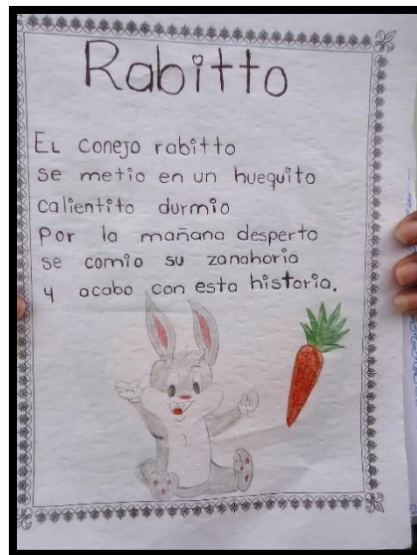 Rabitto
EL conejo rabitto
se metio en un huequito
calientito durmio
Por la mañana desperto
se comio su zanahoria
y acabo con esta historia.